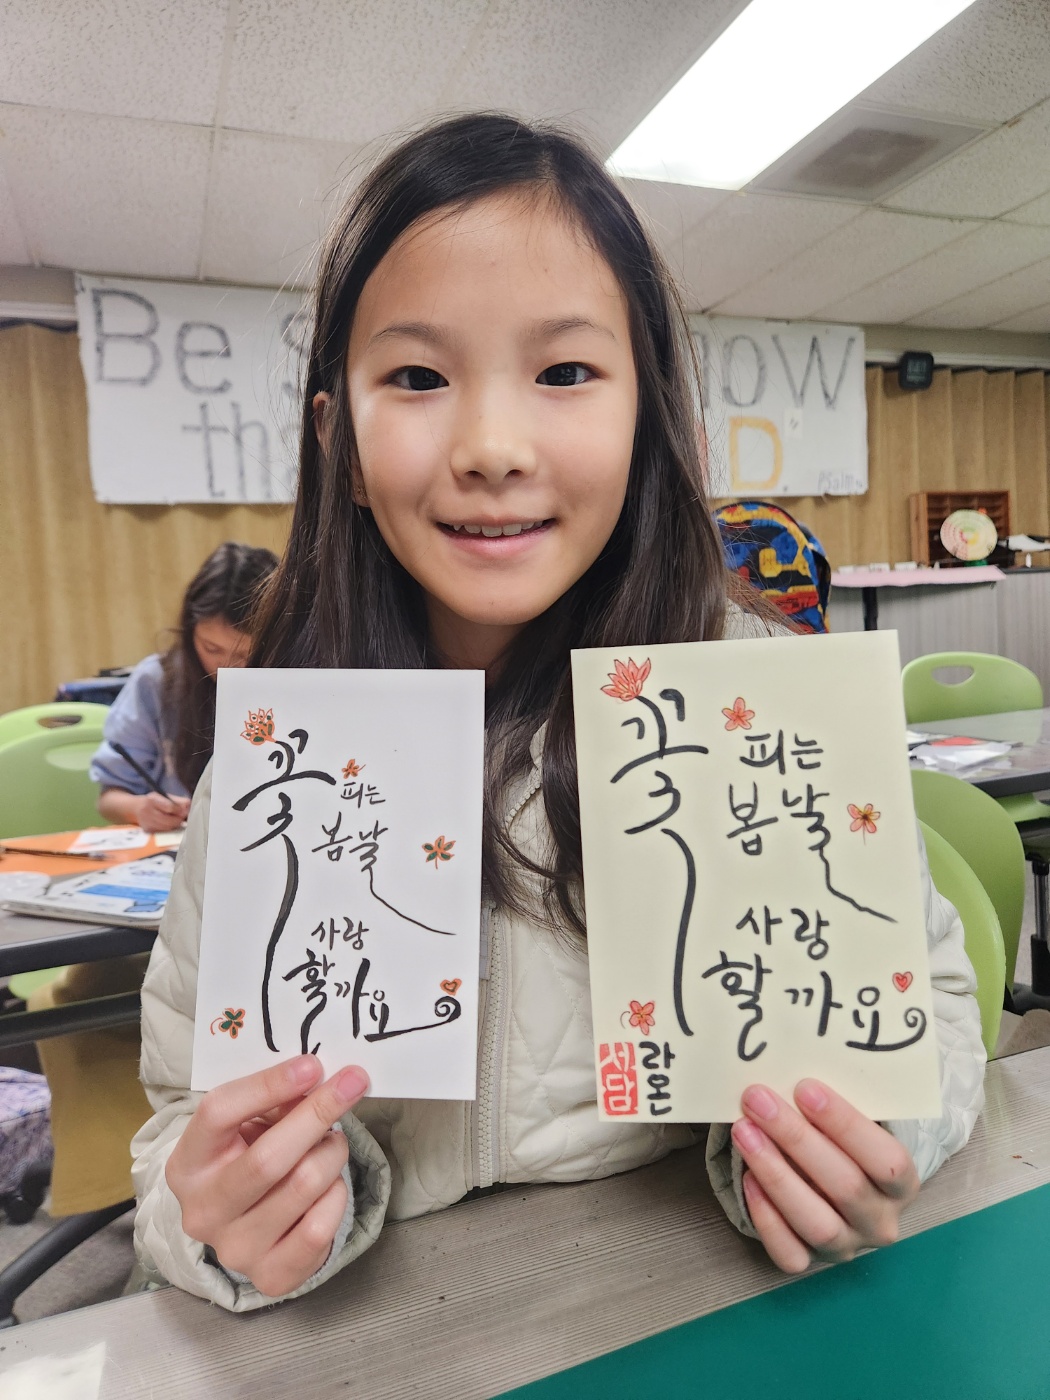 Be s now
tha D.
Psalm
꽃
피는
봄날
사랑
할까요
꽃
피는
봄날
사랑
할까요
서담
라온